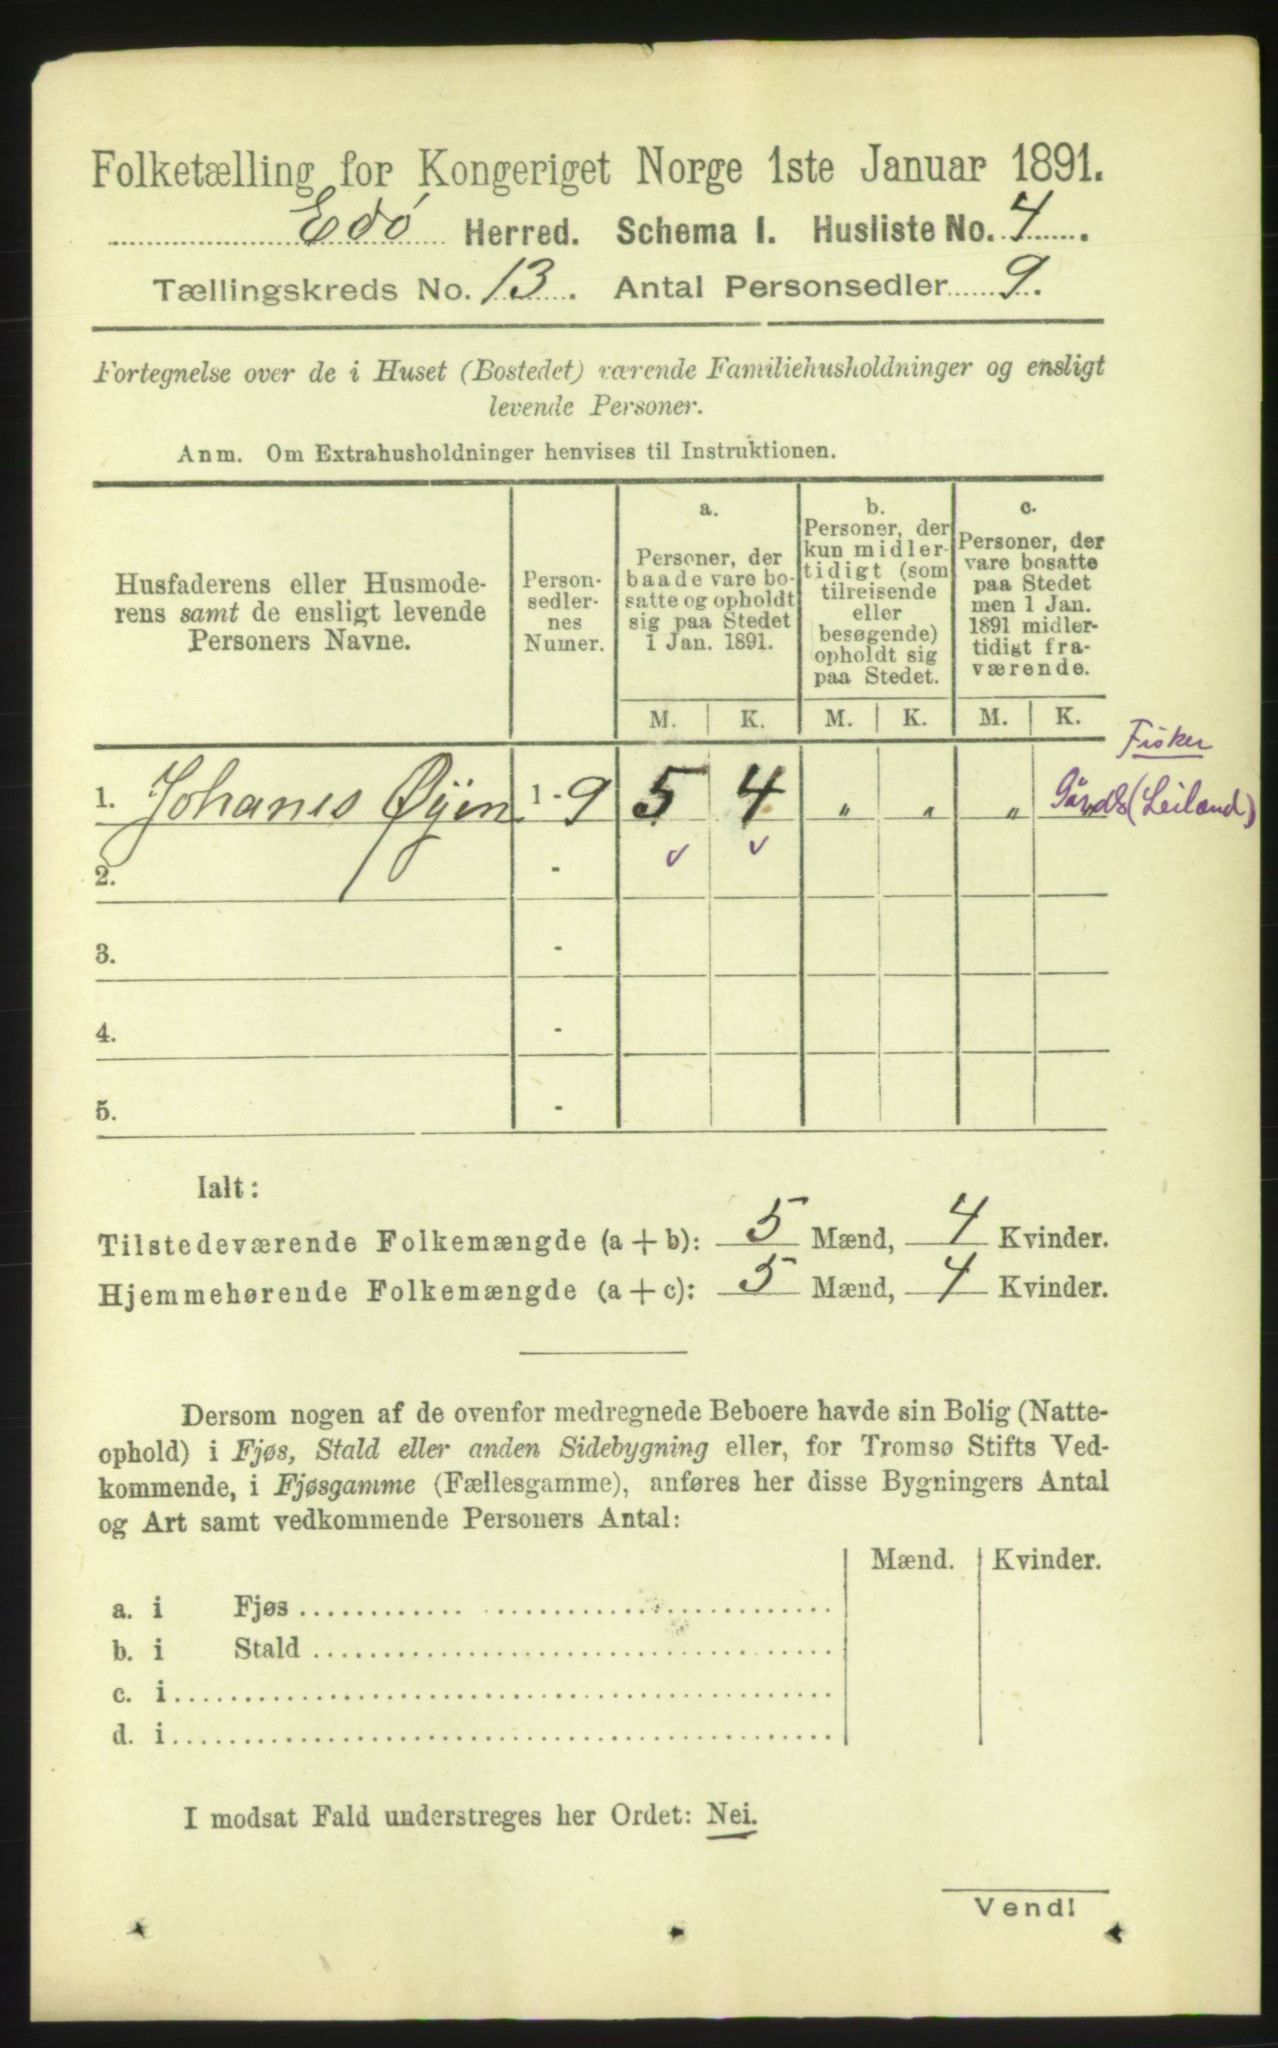 Folketælling for Kongeriget Norge 1ste Januar 1891.
Edø Herred. Schema I. Husliste No. 4.
Tællingskreds No. 13. Antal Personsedler 9.
Fortegnelse over de i Huset (Bostedet) værende Familiehusholdninger og ensligt
levende Personer.
Anm. Om Extrahusholdninger henvises til Instruktionen.
Husfaderens eller Husmode-
rens samt de ensligt levende
Personers Navne.
Person-
sedler-
nes
Numer.
a.
Personer, der
baade vare bo-
satte og opholdt
sig paa Stedet
1 Jan. 1891.
b.
Personer, der
kun midler-
tidigt (som
tilreisende
eller
besøgende)
opholdt sig
paa Stedet.
c.
Personer, der
vare bosatte
paa Stedet
men 1 Jan.
1891 midler-
tidigt fra-
værende.
M. K. M. K. M. K.
Fisker
1. Johanes Øyen 1 - 9 5 4 " " " Gårdb (Leilænd)
2. -
3. -
4. -
5. -
Ialt:
Tilstedeværende Folkemængde (a + b): 5 Mænd, 4 Kvinder.
Hjemmehørende Folkemængde (a + c): 5 Mænd, 4 Kvinder.
Dersom nogen af de ovenfor medregnede Beboere havde sin Bolig (Natte-
ophold) i Fjøs, Stald eller anden Sidebygning eller, for Tromsø Stifts Ved-
kommende, i Fjøsgamme (Fællesgamme), anføres her disse Bygningers Antal
og Art samt vedkommende Personers Antal:
Mænd. Kvinder.
a. i Fjøs
b. i Stald
c. i
d. i
I modsat Fald understreges her Ordet: Nei.
Vend!